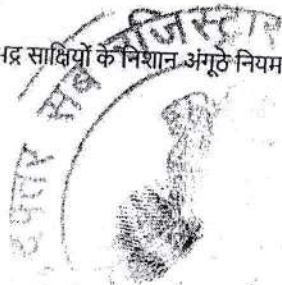 भद्र साक्षियों के निशान अंगूठे नियम
दफ्तर सब रजिस्ट्रार